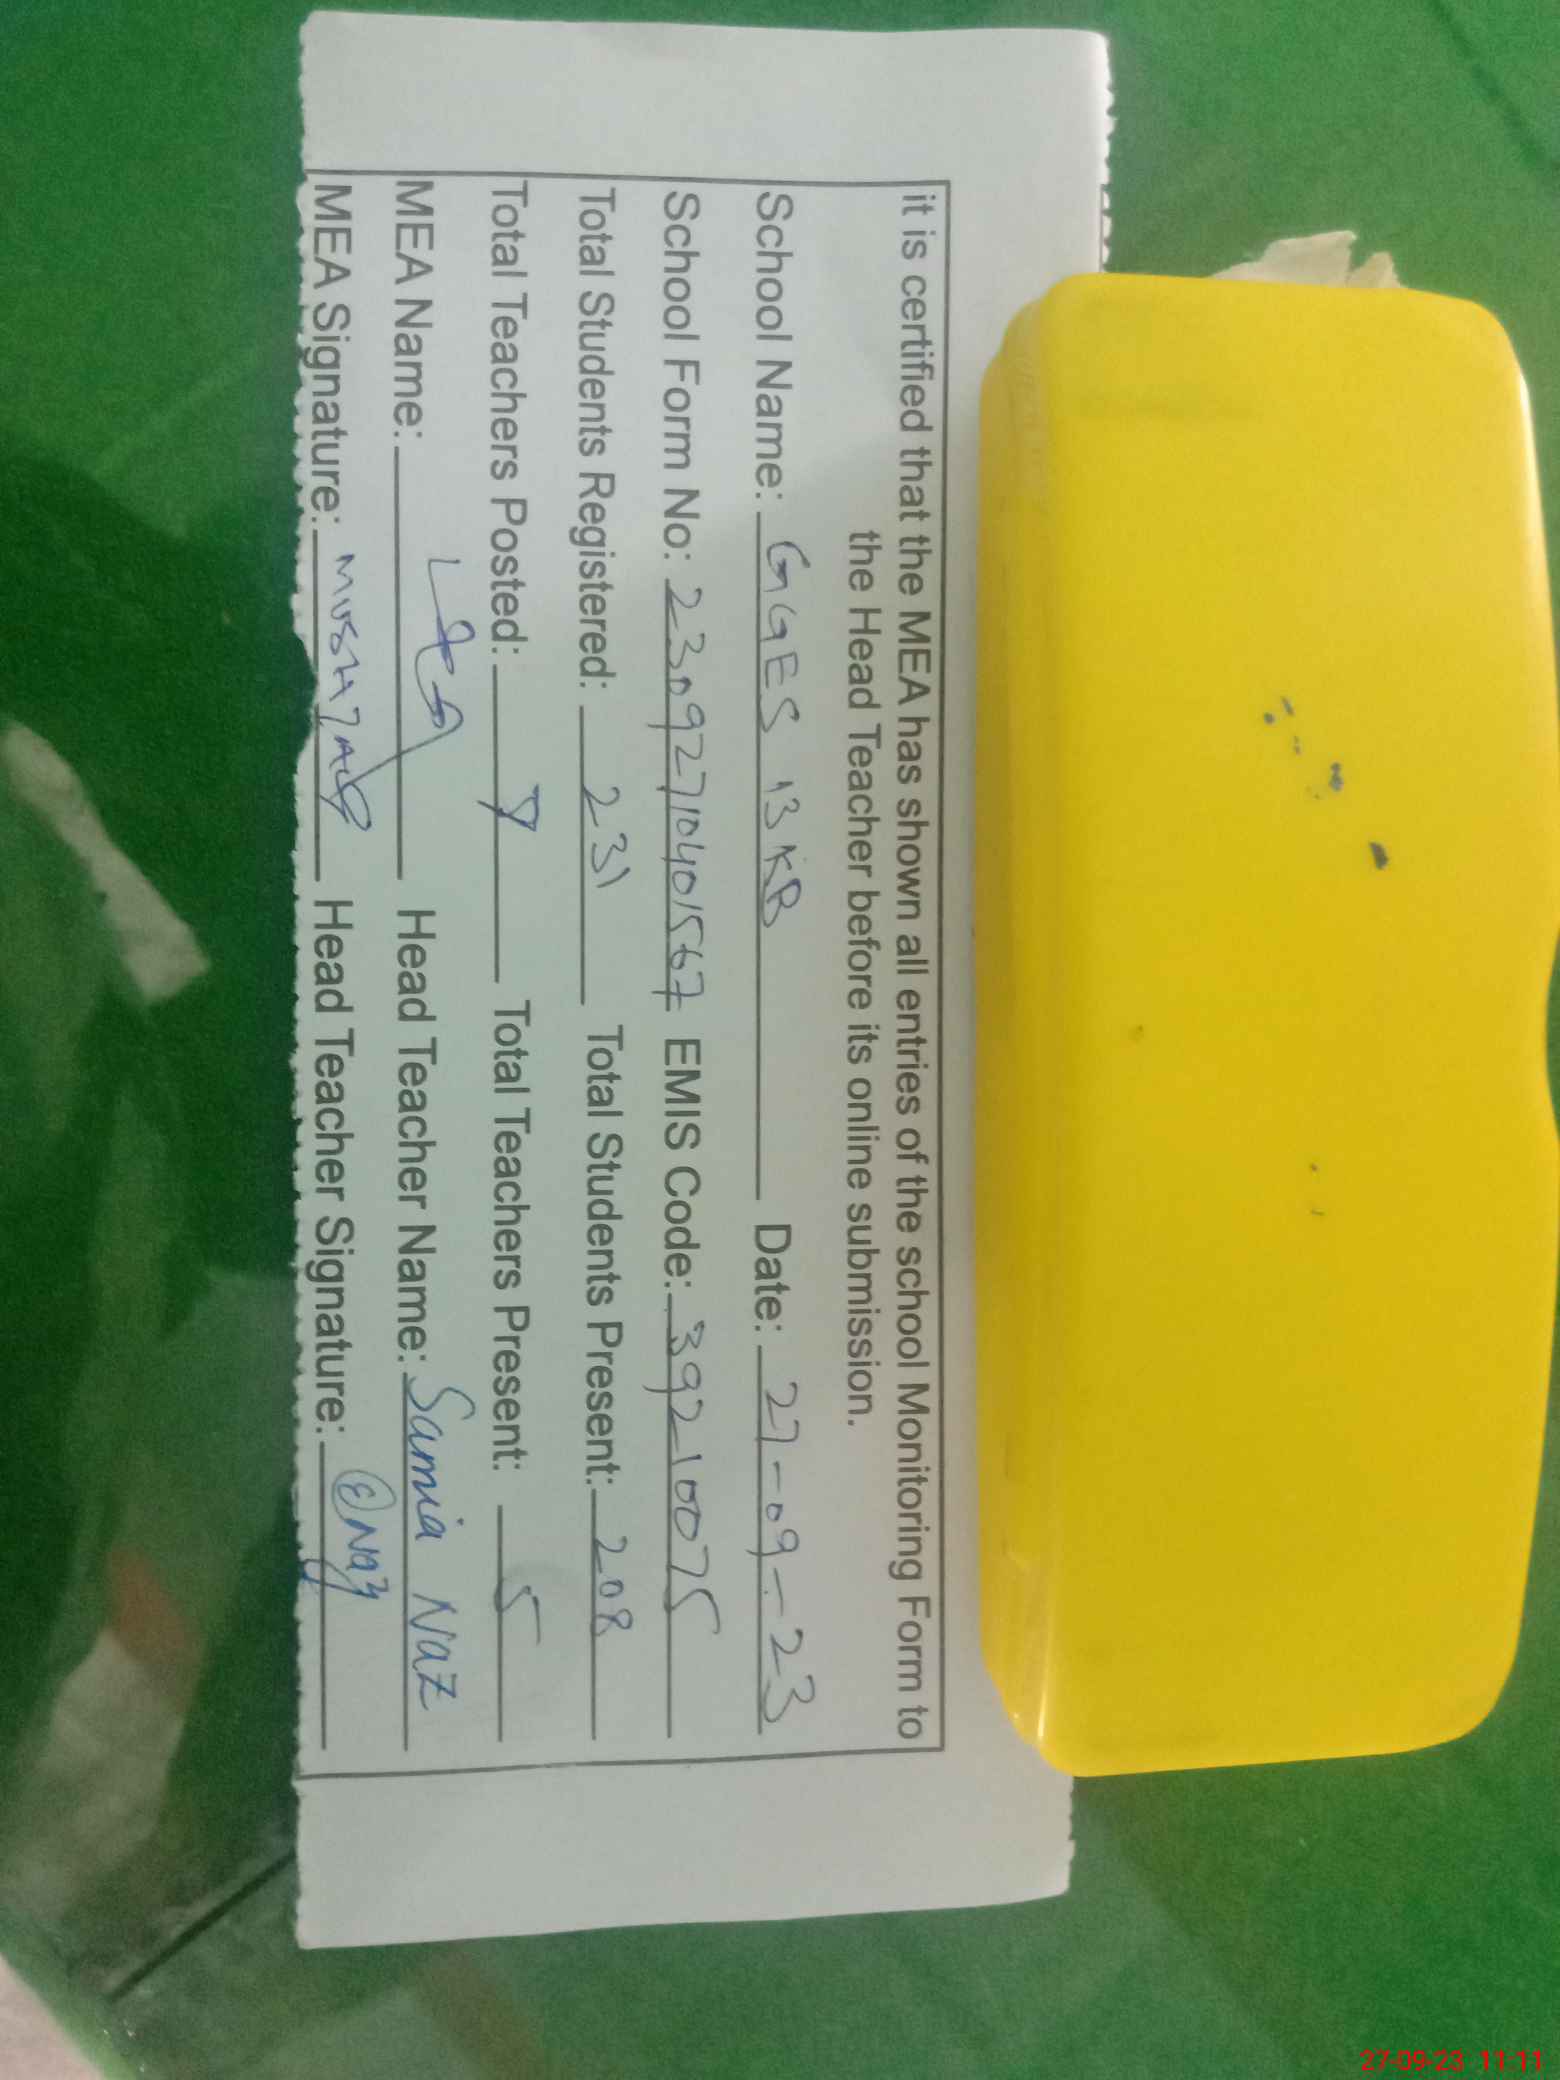 it is certified that the MEA has shown all entries of the school Monitoring Form to
the Head Teacher before its online submission.
School Name: GGES 13 KB Date: 27-09-23
School Form No: 23092710401567 EMIS Code: 39210075
Total Students Registered: 231 Total Students Present: 208
Total Teachers Posted: Total Teachers Present: 5
MEA Name: Head Teacher Name: Samia Naz
MEA Signature: Head Teacher Signature: Naz
27-09-23 11:11